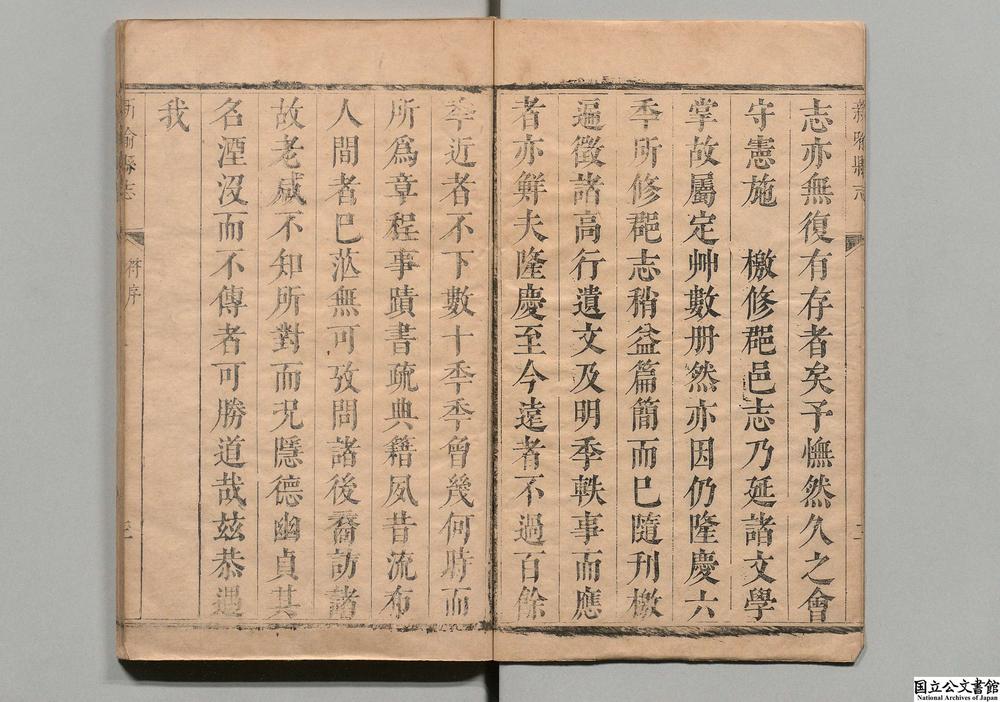 新喻縣志
志亦無復有存者矣予憮然久之會
守憲施　檄修郡邑志乃延諸文學
掌故屬定艸數册然亦因仍隆慶六
秊所修郡志稍益篇簡而已隨刊檄
遍徵諸高行遺文及明季軼事而應
者亦鮮夫隆慶至今遠者不過百餘
秊近者不下數十秊秊曾幾何時而
所爲章程事蹟書疏典籍夙昔流布
人間者已茫無可攷問諸後裔訪諸
故老咸不知所對而况隱德幽貞其
名湮没而不傳者可勝道哉兹恭遇
我
新喻縣志
符序
三
国立公文書館
National Archives of Japan